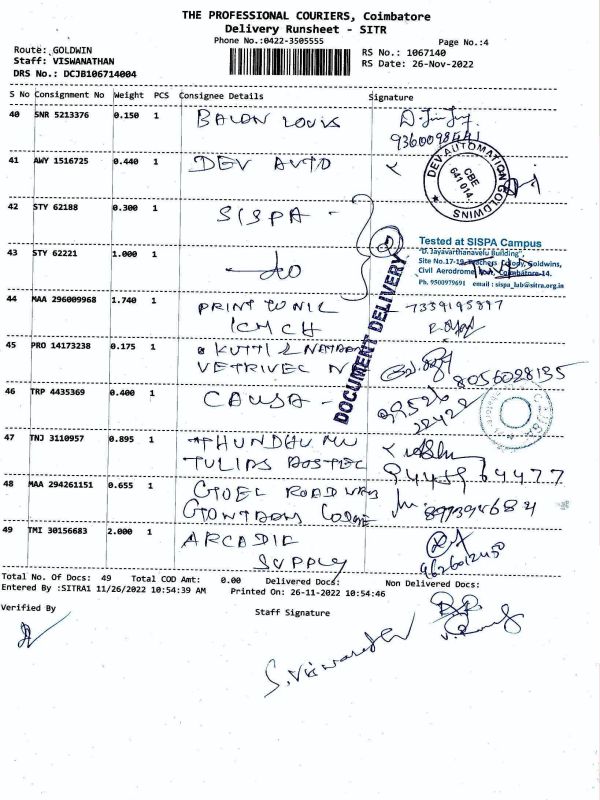 THE PROFESSIONAL COURIERS, Coimbatore
Delivery Runsheet - SITR
Phone No.:0422-3505555
Page No.:4
Route: GOLDWIN
Staff: VISWANATHAN
DRS No.: DCJB106714004
RS No.: 1067140
RS Date: 26-Nov-2022
S No Consignment No Weight PCS Consignee Details Signature
40 SNR 5213376 0.150 1 BALON LOUIS
41 AWY 1516725 0.440 1 DEV AUTO
DEV AUTOMATION
CBE
641 014.
GOLDWINS
42 STY 62188 0.300 1 SISPA -
Tested at SISPA Campus
"D. Jayavarthanavelu Building",
Site No.17-19, Teachers Colony, Goldwins,
Civil Aerodrome Post, Coimbatore-14.
Ph. 9500979691 email : sispa_lab@sitra.org.in
43 STY 62221 1.000 1 do
DOCUMENT DELIVERY
44 MAA 296009968 1.740 1 PRINT
ICMCH
45 PRO 14173238 0.175 1 KUTTI
VETRIVEL N 8056028135
46 TRP 4435369 0.400 1 CAUSA -
47 TNJ 3110957 0.895 1
TULIPS 9445964477
48 MAA 294261151 0.655 1 GOEL ROAD
49 TMI 30156683 2.000 1 ARCADIA
SUPPLY
Total No. Of Docs: 49 Total COD Amt: 0.00 Delivered Docs: Non Delivered Docs:
Entered By :SITRA1 11/26/2022 10:54:39 AM Printed On: 26-11-2022 10:54:46
Verified By
Staff Signature
S. Viswanathan